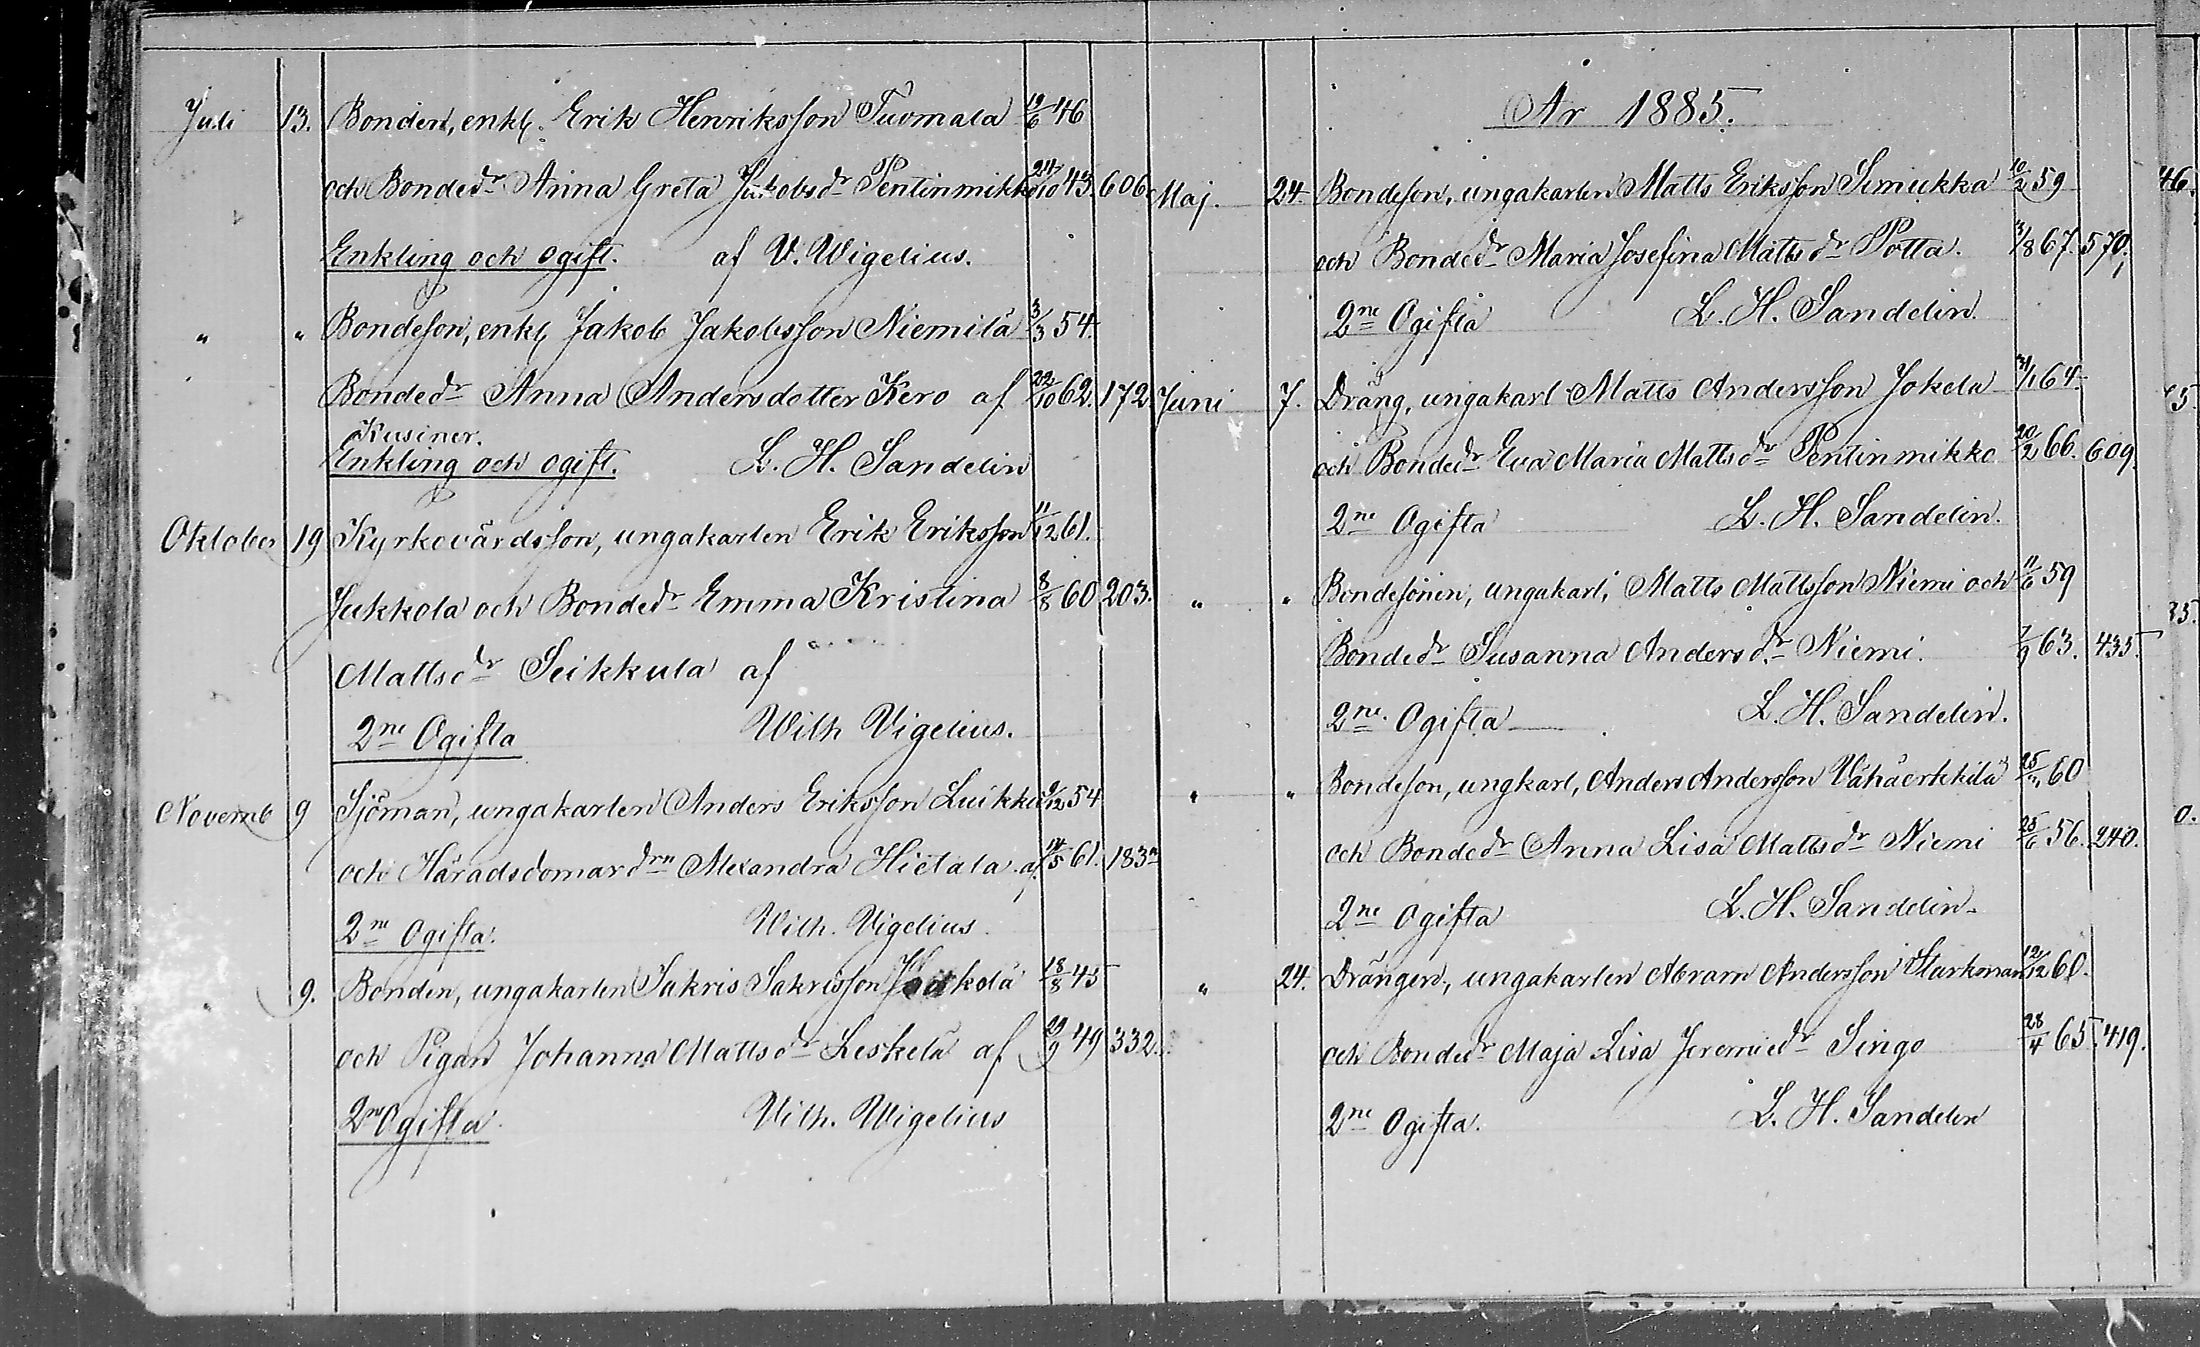 Juli 13. Bonden, enkl. Erik Henriksson Tuomala 19/6 46
och Bondedr Anna Greta Jakobsdr Pentinmikko 24/10 43. 606.
Enkling och ogift. af V. Wigelius.
" " Bondeson, enkl. Jakob Jakobsson Niemilä 3/3 54.
Bondedr Anna Andersdotter Kero af 22/10 62. 172
Kusiner.
Enkling och ogift. L. H. Sandelin
Oktober 19 Kyrkovärdsson, ungakarlen Erik Eriksson 11/12 61.
Jukkola och Bondedr Emma Kristina 8/8 60 203.
Mattsdr Seikkula af
2ne Ogifta Wilh Vigelius.
Novemb 9 Sjöman, ungakarlen Anders Eriksson Luikku 9/12 54
och Häradsdomardrn Alexandra Hietala af 14/5 61. 183
2ne Ogifta. Wilh. Vigelius.
9. Bonden, ungakarlen Sakris Sakrisson 18/8 45
och Pigan Johanna Mattsdr Leskelä af 29/9 49 332.
2ne Ogifta. Vilh. Wigelius
År 1885.
Maj. 24. Bondeson, ungakarlen Matts Eriksson Simukka 10/2 59
och Bondedr Maria Josefina Mattsdr Potta. 3/8 67. 570.
2ne Ogifta L. H. Sandelin
Juni 7. Dräng, ungakarl Matts Andersson Jokela 31/1 64.
och Bondedr Eva Maria Mattsdr Pentinmikko 20/2 66. 609.
2ne Ogifta L. H. Sandelin.
" " Bondesonen, ungakarl, Matts Mattsson Niemi och 11/6 59
Bondedr Susanna Andersdr Niemi. 7/9 63. 435.
2ne Ogifta L. H. Sandelin.
" " Bondeson, ungkarl, Anders Andersson Vähäerkkilä 60
och Bondedr Anna Lisa Mattsdr Niemi 25/6 56. 240.
2ne Ogifta L. H. Sandelin.
" 24. Drängen, ungakarlen Abram Andersson Starkman 12/12 60.
och Bondedr Maja Lisa Jeremiedr Singo 28/4 65. 419.
2ne Ogifta. L. H. Sandelin
46.
5.
35.
0.